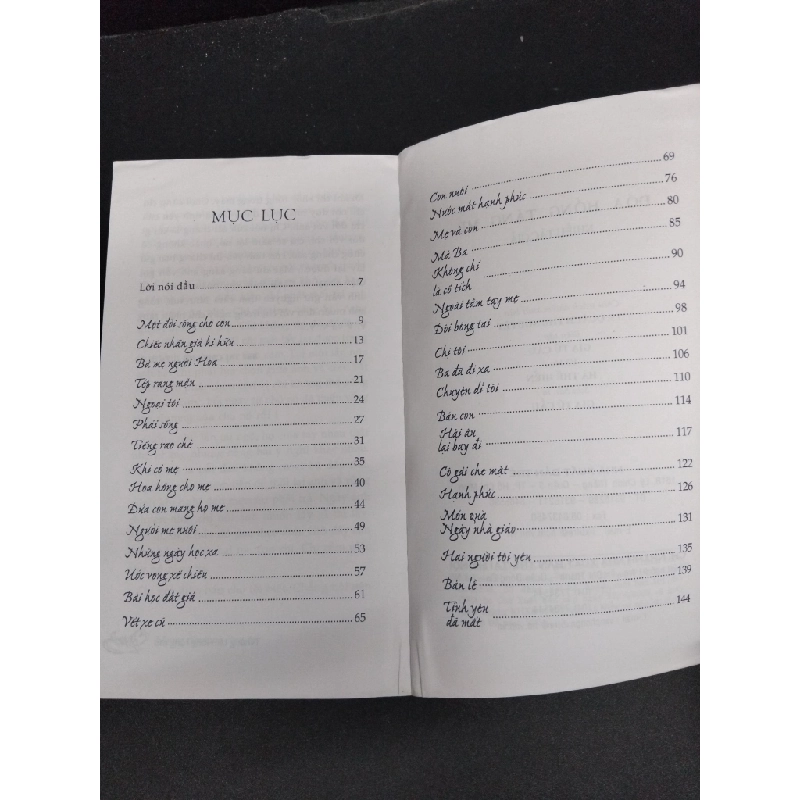 MỤC LỤC
Lời nói đầu 7
Một đời sống cho con 9
Chiếc nhẫn giá kỉ hữu 13
Bà mẹ người Hoa 17
Tép rang mặn 21
Ngoại tôi 24
Phải sống 27
Tiếng rao chè 31
Khi có mẹ 35
Hoa hồng cho mẹ 40
Đứa con mang họ mẹ 44
Người mẹ nuôi 49
Những ngày học xa 53
Ước vọng xế chiều 57
Bài học đắt giá 61
Vết xe cũ 65
Con nuôi 69
Nước mắt hạnh phúc 76
Mẹ và con 80
Má Ba 85
Không chỉ
là cổ tích 90
Ngoài tầm tay mẹ 94
Đôi bông tai 98
Chị tôi 101
Ba đã đi xa 106
Chuyện dì tôi 110
Bán con 114
Hải âu
lại bay đi 117
Cô gái che mặt 122
Hạnh phúc 126
Món quà
Ngày nhà giáo 131
Hai người tôi yêu 135
Bản lề 139
Tình yêu
đã mất 144